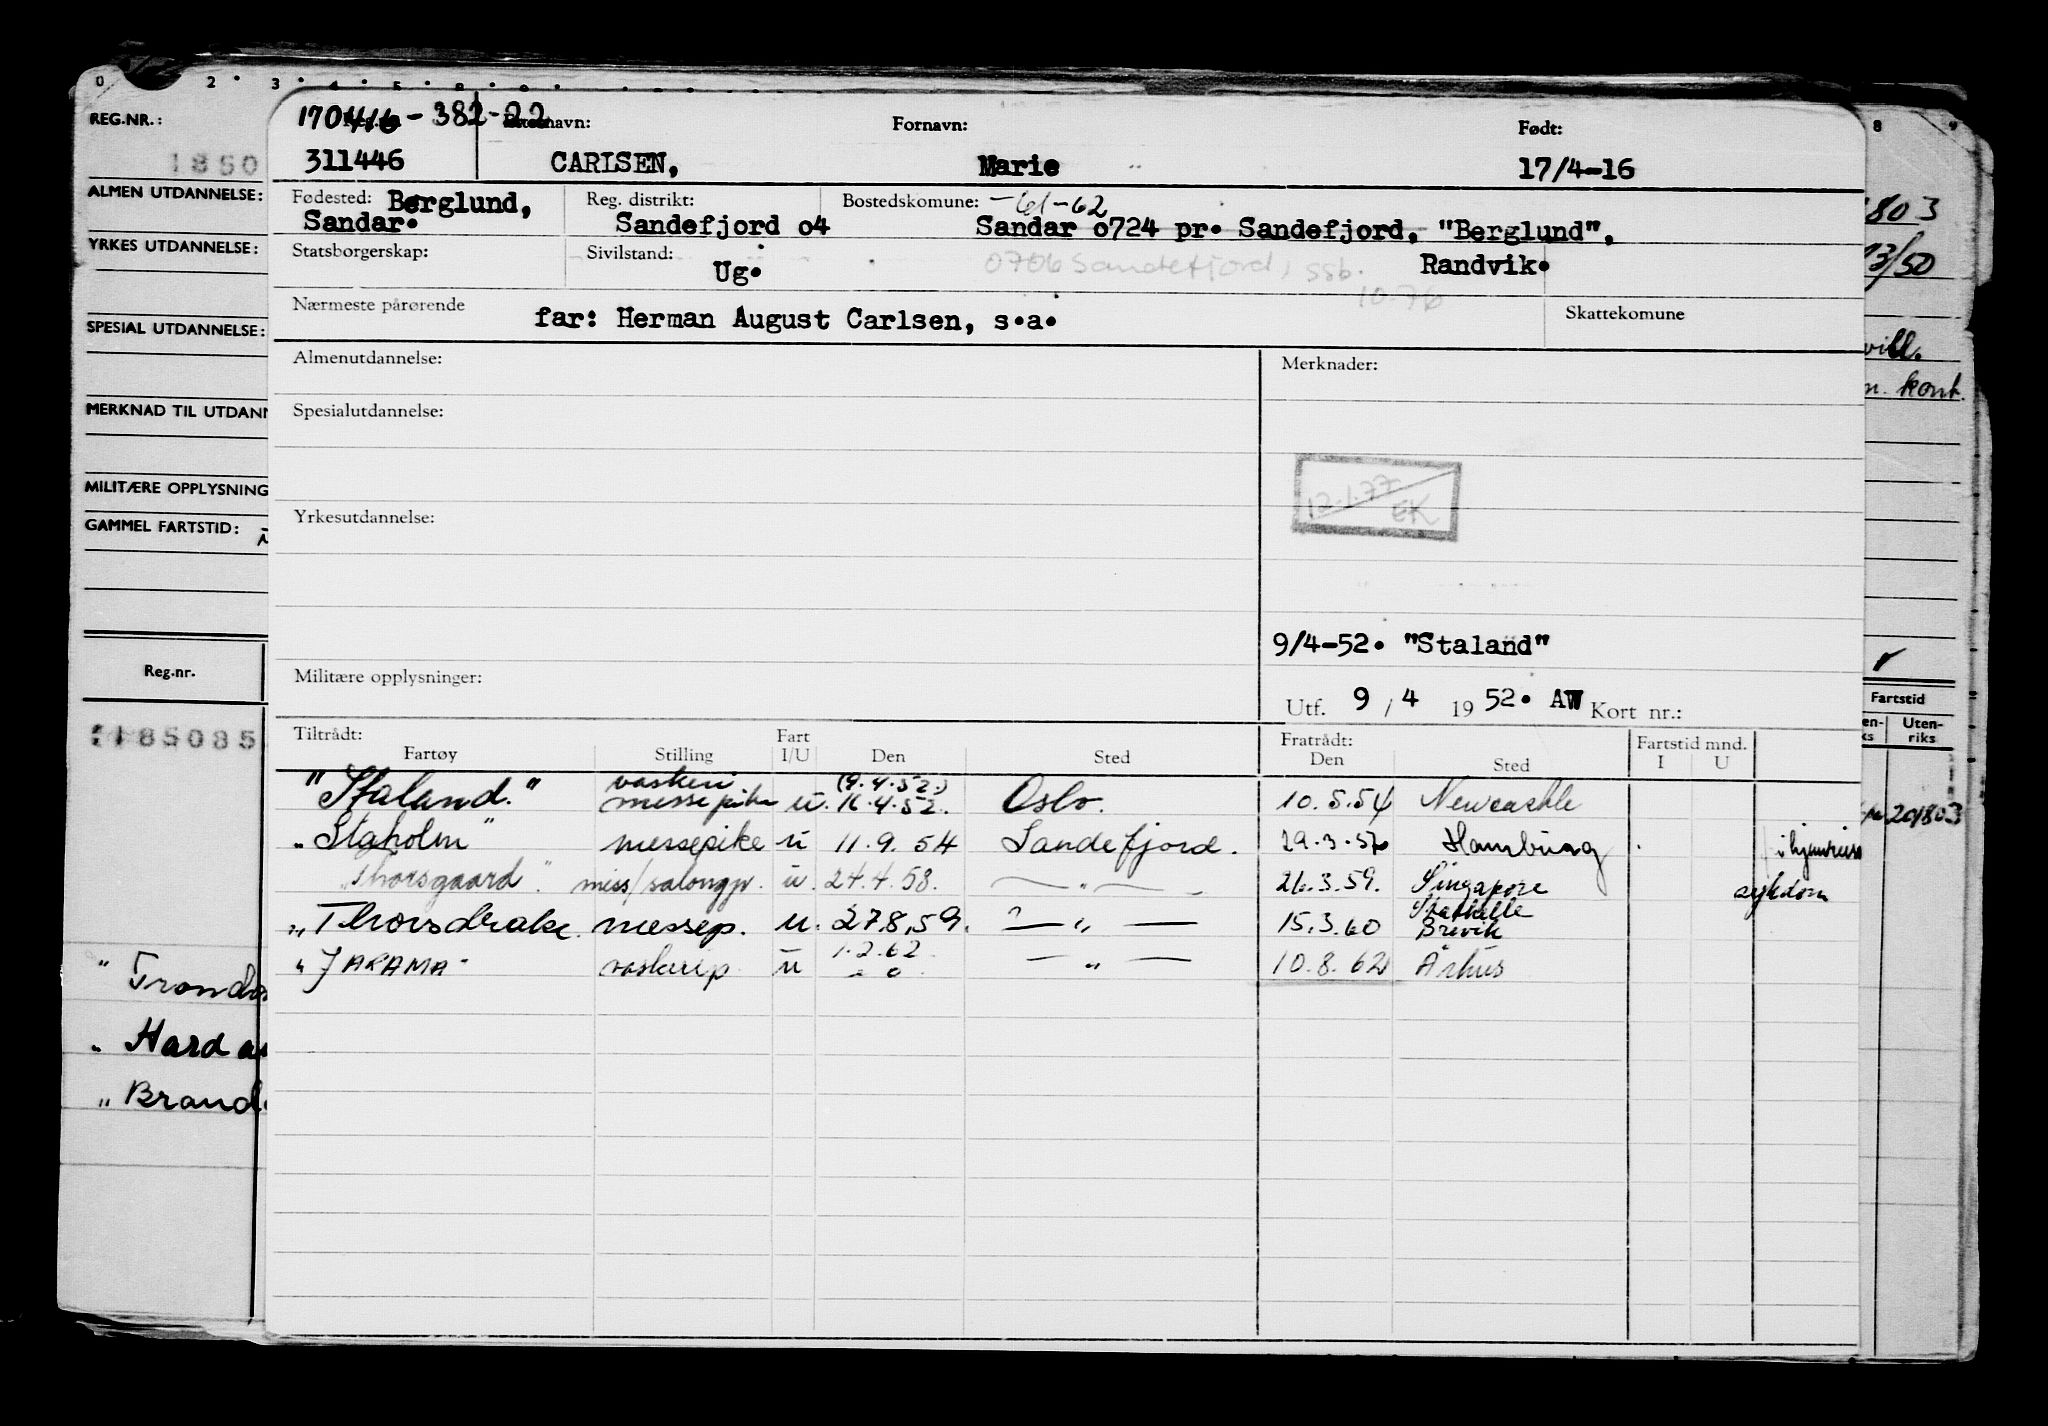 0 2 3 4 5 8 9
REG.NR.:
1850
ALMEN UTDANNELSE:
YRKES UTDANNELSE:
SPESIAL UTDANNELSE:
MERKNAD TIL UTDANN
MILITÆRE OPPLYSNING
GAMMEL FARTSTID:
Reg.nr.
185085
" Trond
" Hard a
" Brand
170416-382-22
navn:
Fornavn:
Født:
311446
CARLSEN,
Marie
17/4-16
Fødested: Berglund,
Sandar.
Reg. distrikt:
Sandefjord o4
Bostedskommune: -61-62
Sandar o724 pr. Sandefjord, "Berglund",
Randvik.
Statsborgerskap:
Sivilstand:
Ug.
0706 Sandefjord, ssb.
10.76
Nærmeste pårørende
far: Herman August Carlsen, s.a.
Skattekomune
Almenutdannelse:
Merknader:
Spesialutdannelse:
12.1.77
EK
Yrkesutdannelse:
9/4-52. "Staland"
Militære opplysninger:
Utf. 9 / 4 19 52. AW Kort nr.:
Tiltrådt:
Fartøy
Stilling
Fart
I/U
Den
Sted
Fratrådt:
Den
Sted
Fartstid mnd.
I U
"Staland." vaskeri messepike u. (9.4.52.) 16.4.52. Oslo. 10.5.54 Newcastle
"Staholm" messepike u 11.9.54 Sandefjord. 29.3.57 Hamburg
"Thorsgaard". mess/salongp. u. 24.4.58. — " — 26.3.59. Singapore sykdom
"Thorsdrake. messep. u. 27.8.59. — " — 15.3.60 Stathelle Brevik
"JARAMA" vaskerip u 1.2.62 — " — 10.8.62 Århus
8 9
803
13/50
vill.
m. kont.
Fartstid
en-
ks
Uten-
riks
201803